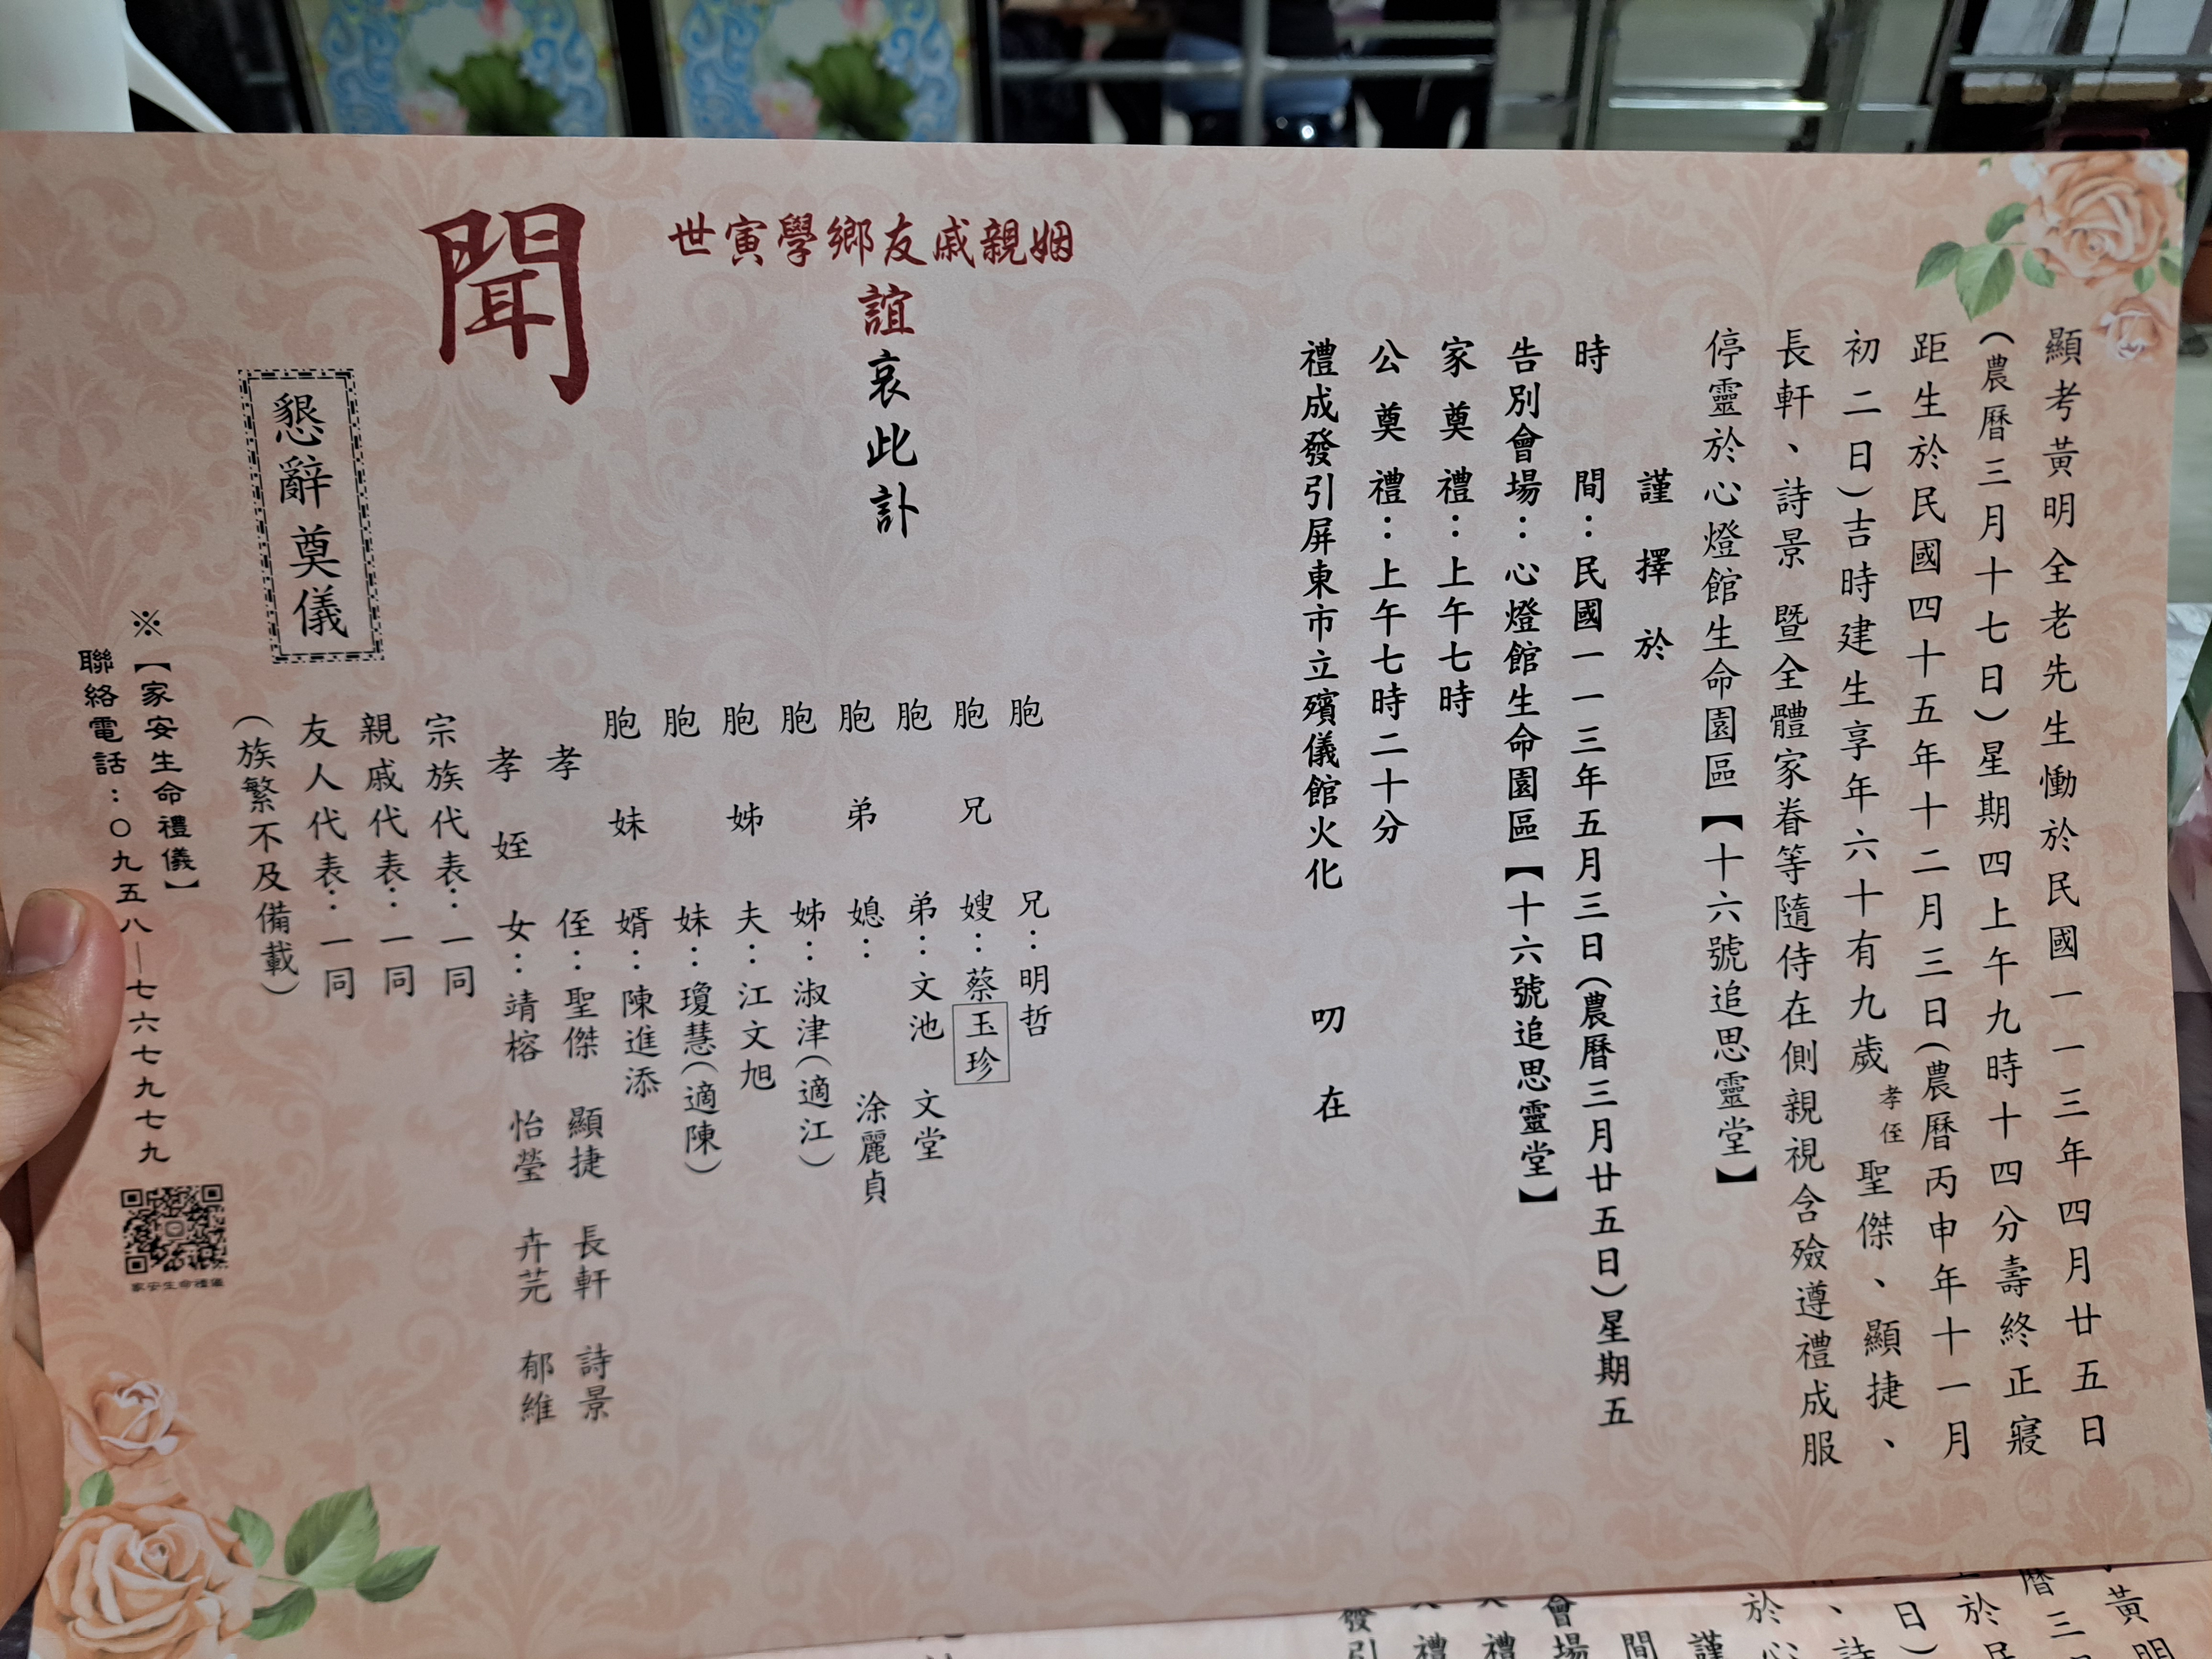 顯考黃明全老先生慟於民國一一三年四月廿五日
(農曆三月十七日)星期四上午九時十四分壽終正寢
距生於民國四十五年十二月三日(農曆丙申年十一月
初二日)吉時建生享年六十有九歲 孝侄 聖傑、顯捷、
長軒、詩景 暨全體家眷等隨侍在側親視含殮遵禮成服
停靈於心燈館生命園區【十六號追思靈堂】
謹擇於
時間：民國一一三年五月三日(農曆三月廿五日)星期五
告別會場：心燈館生命園區【十六號追思靈堂】
家奠禮：上午七時
公奠禮：上午七時二十分
禮成發引屏東市立殯儀館火化 叨在
世寅學鄉友戚親姻
誼哀此訃
聞
胞兄：明哲
胞兄嫂：蔡玉珍
胞弟：文池 文堂
胞弟媳： 涂麗貞
胞姊：淑津(適江)
胞姊夫：江文旭
胞妹：瓊慧(適陳)
胞妹婿：陳進添
孝侄：聖傑 顯捷 長軒 詩景
孝姪女：靖榕 怡瑩 卉芫 郁維
宗族代表：一同
親戚代表：一同
友人代表：一同
(族繁不及備載)
懇辭奠儀
※【家安生命禮儀】
聯絡電話：〇九五八—七六七九七九
家安生命禮儀